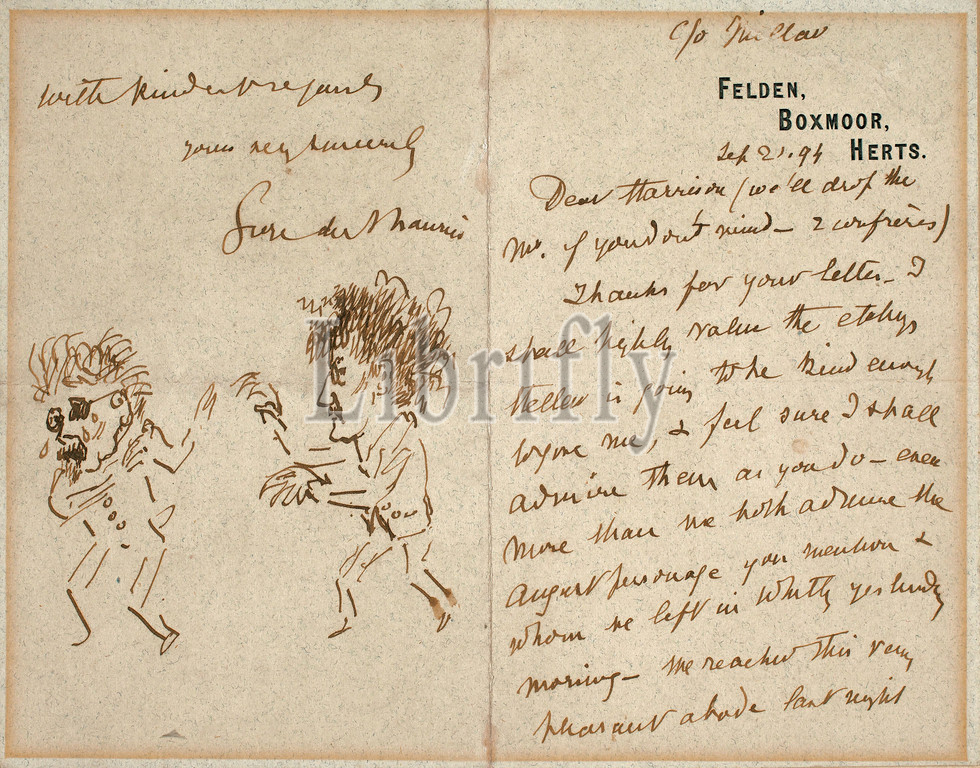 c/o
FELDEN,
BOXMOOR,
HERTS.
Sep 21. 94
Dear Harrison (we'll drop the
Mr. if you don't mind – 2 confrères)
Thanks for your letter – I
shall highly value the etchings
is going to be kind enough
to give me, & feel sure I shall
admire them as you do – even
more than we both admire the
august personage you mention &
whom we left in Whitby yesterday
morning – We reached this very
pleasant abode last night
with kindest regards
yours very sincerely
du Maurier
Librifly